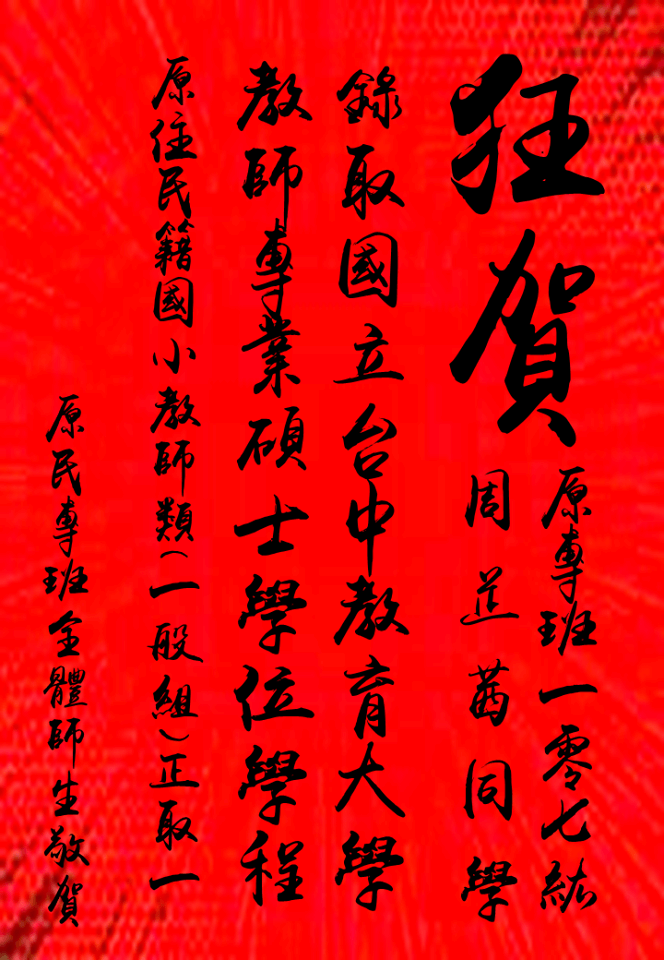 狂賀
原專班一零七級
周芷茜同學
錄取國立台中教育大學
教師專業碩士學位學程
原住民籍國小教師類(一般組)正取一
原民專班全體師生敬賀